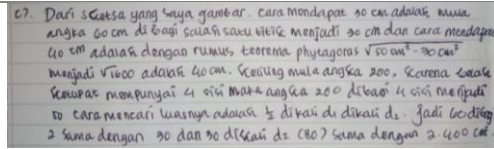 c). Dari sketsa yang saya gambar. cara mendapat 30 cm adalah mula
angka 60 cm di bagi salah satu titik menjadi 30 cm dan cara mendapa
40 cm adalah dengan rumus, teorema phytagoras √50 cm² - 30 cm²
menjadi √1600 adalah 40 cm. keliling mula angka 200, karena
mempunyai 4 sisi maka angka 200 dibagi 4 sisi menjadi
50 cara mencari luasnya adalah ½ dikali d₁ dikali d₂. Jadi 60 dibagi
2 sama dengan 30 dan 30 dikali d₂ (80) sama dengan 2.400 cm²